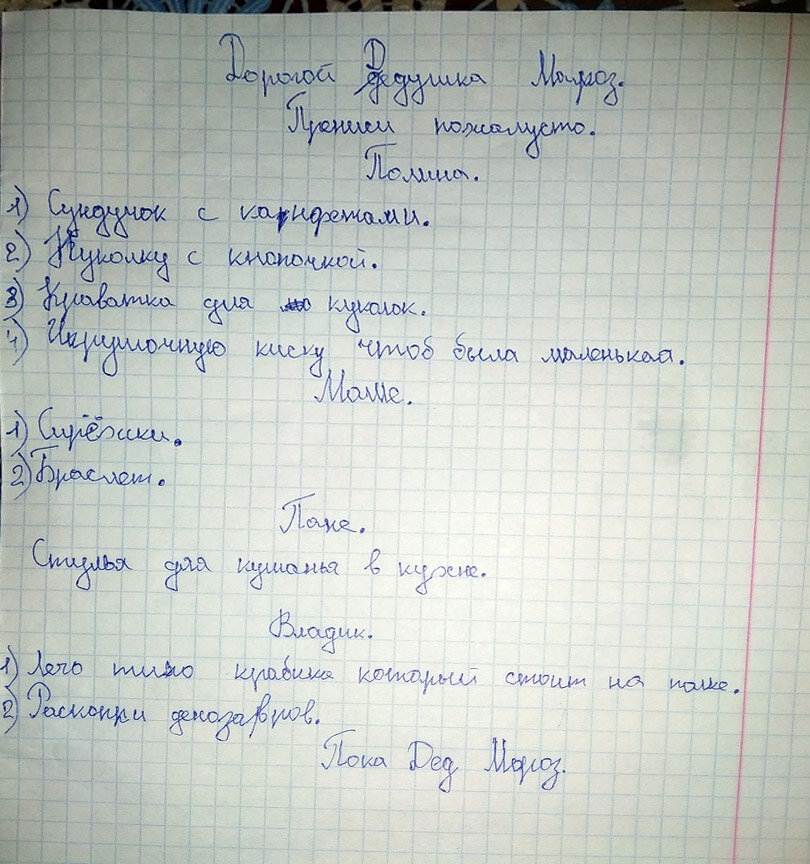 Дорогой Дедушка Мароз.
Приниси пожалусто.
Полина.
1) Сундучок с канфетами.
2) Куколку с кнопочкой.
3) Краватка для куколок.
4) Икрушочную киску чтоб была маленькая.
Маме.
1) Сирёжки.
2) Браслет.
Папе.
Стулья для кушанья в кухне.
Владик.
1) Лего типо крабика который стоит на полке.
2) Раскопки денозавров.
Пока Дед Мороз.